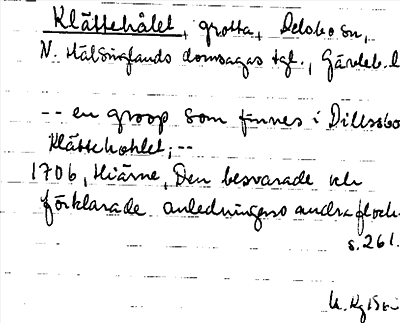 Klättehålet, grotta, Delsbo sn,
N. Hälsinglands domsagas tgl., Gävleb. l
-- en groop som finnes i Dillssbo
Klättehohlet; --
1706, Hiärne, Den besvarade och
förklarade anledningens andra flock
s. 261.